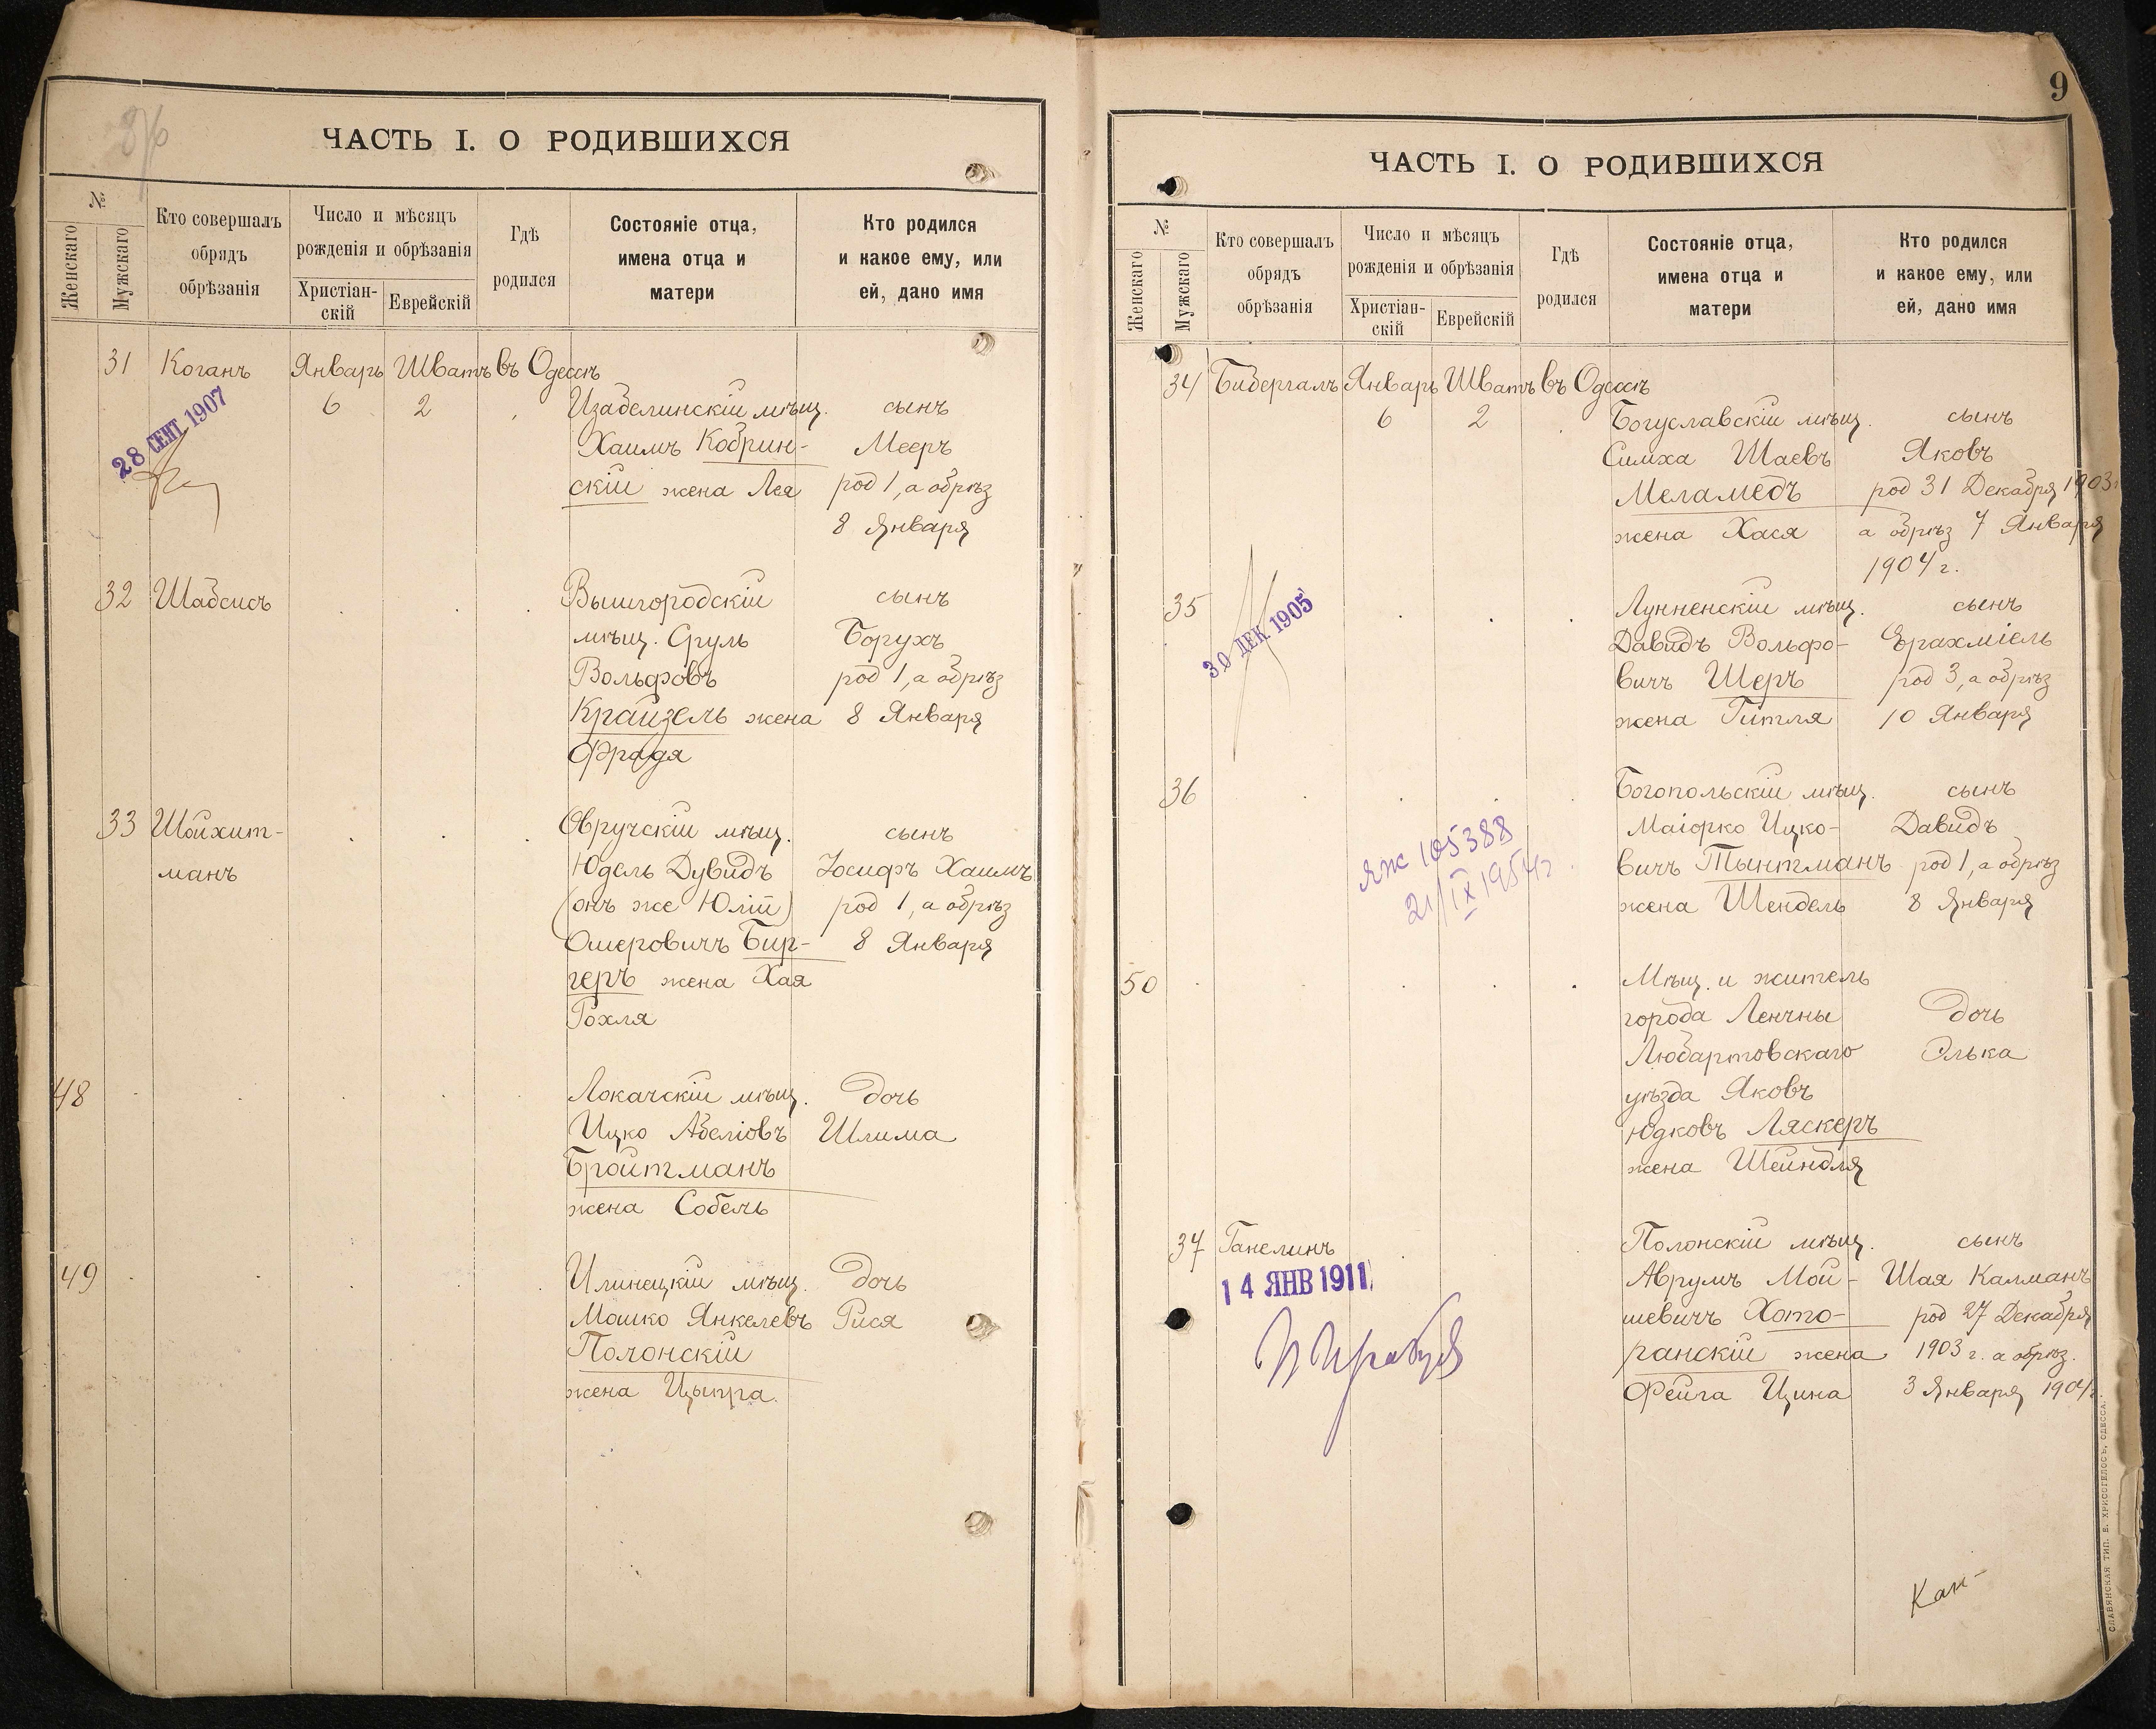 ЧАСТЬ I. О РОДИВШИХСЯ
№
Женскаго
Мужскаго
Кто совершалъ
обрядъ
обрѣзанія
Число и мѣсяцъ
рожденія и обрѣзанія
Христіан-
скій
Еврейскій
Гдѣ
родился
Состояніе отца,
имена отца и
матери
Кто родился
и какое ему, или
ей, дано имя
31 Коганъ Январь Шватъ въ Одессѣ
6 2 Изабелинскій мѣщ. сынъ
28 СЕНТ 1907
Хаимъ Кобрин- Мееръ
скій жена Лея род 1, а обрѣз
8 Января
32 Шабсисъ Вышгородскій сынъ
мѣщ. Сруль Борухъ
Вольфовъ род 1, а обрѣз
Крайзель жена 8 Января
Фрадя
33 Шойхит- Овручскій мѣщ. сынъ
манъ Юдель Дувидъ Іосифъ Хаимъ
(онъ же Юлій) род 1, а обрѣз
Ошеровичъ Бир- 8 Января
геръ жена Хая
Рохля
48 Локачскій мѣщ. дочь
Ицко Абеліовъ Шлима
Бройтманъ
жена Собель
49 Илинецкій мѣщ. дочь
Мошко Янкелевъ Рися
Полонскій
жена Цыпра.
9
ЧАСТЬ I. О РОДИВШИХСЯ
№
Женскаго
Мужскаго
Кто совершалъ
обрядъ
обрѣзанія
Число и мѣсяцъ
рожденія и обрѣзанія
Христіан-
скій
Еврейскій
Гдѣ
родился
Состояніе отца,
имена отца и
матери
Кто родился
и какое ему, или
ей, дано имя
34 Бибергалъ Январь Шватъ въ Одессѣ
6 2 Богуславскій мѣщ. сынъ
Симха Шаевъ Яковъ
Меламедъ род 31 Декабря 1903г
жена Хася а обрѣз 7 Января
1904 г.
35 Лунненскій мѣщ. сынъ
30 ДЕК 1905
Давидъ Вольфо- Ерахміель
вичъ Шеръ род 3, а обрѣз
жена Гитля 10 Января
36 Богопольскій мѣщ. сынъ
Маіорко Ицко- Давидъ
вичъ Тынтманъ род 1, а обрѣз
жена Шендель 8 Января
ЯЖ 105388
21/IX 1954г
50 Мѣщ. и житель
города Ленчны дочь
Любартовскаго Элька
уѣзда Яковъ
Юдковъ Ляскеръ
жена Шейндля
37 Ганелинъ Полонскій мѣщ. сынъ
14 ЯНВ 1911
Аврумъ Мой- Шая Калманъ
шевичъ Хото- род 27 Декабря
ранскій жена 1903 г. а обрѣз.
Фейга Цина 3 Января 1904г.
Кан-
СЛАВЯНСКАЯ ТИП. Е. ХРИСОГЕЛОСЪ, ОДЕССА.